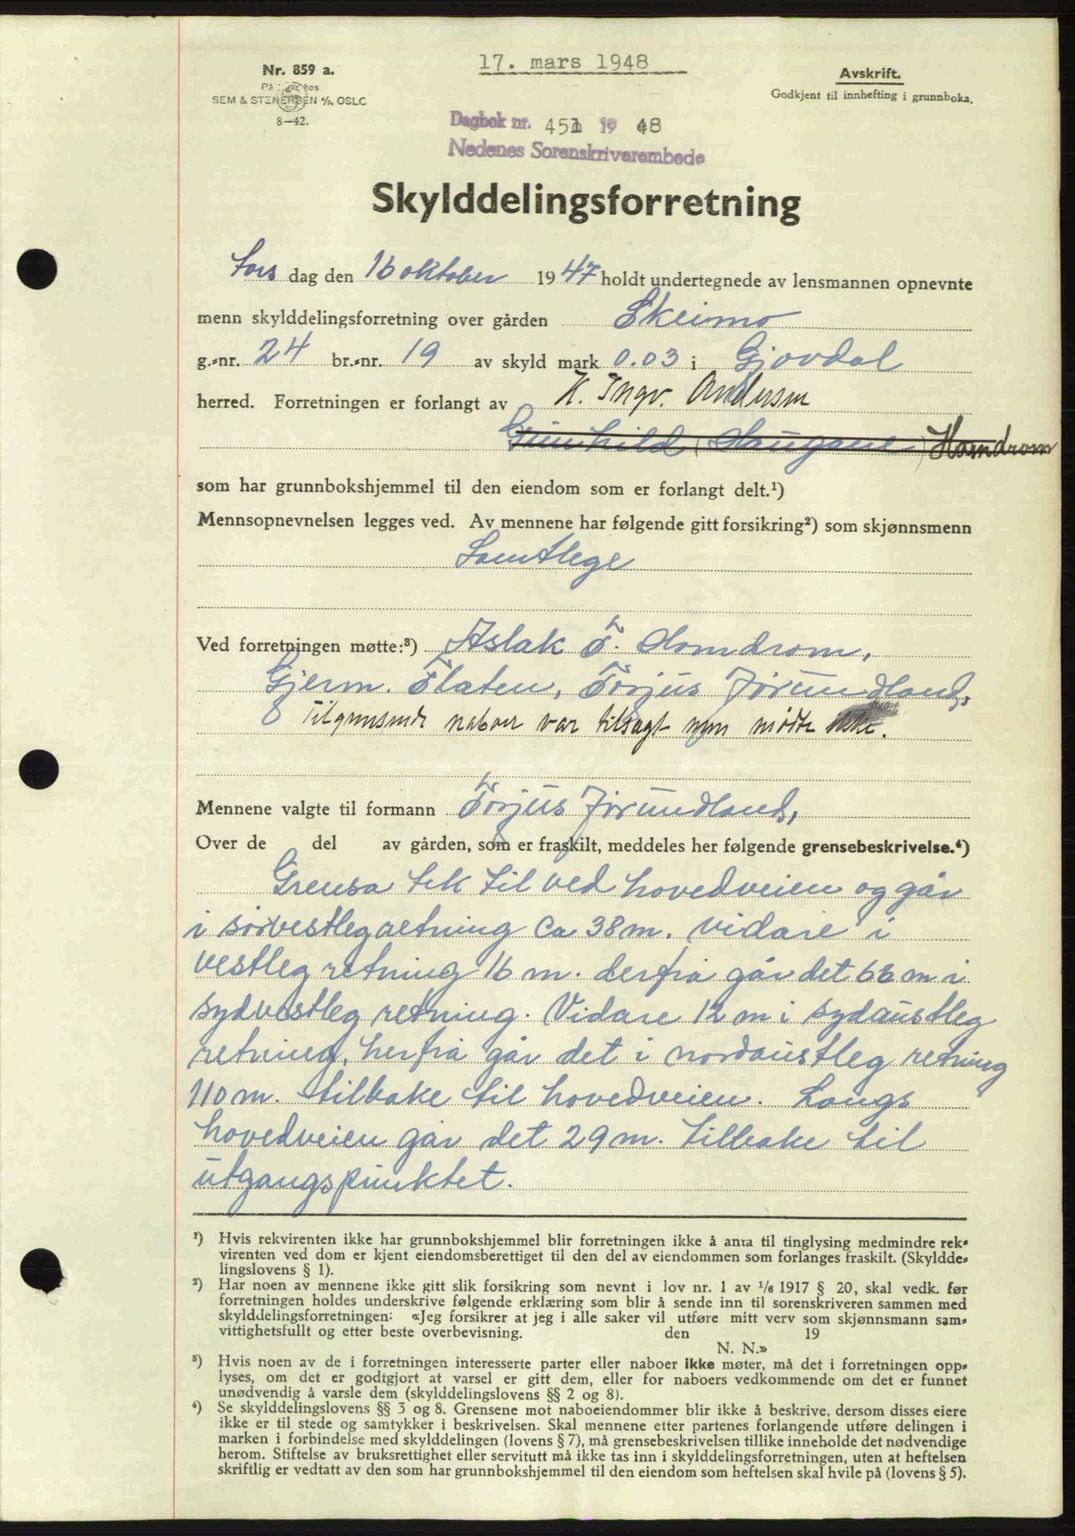 Nr. 859 a.
På lager hos
SEM & STENERSEN A/S, OSLO
8—42.
17. mars 1948
Avskrift.
Godkjent til innhefting i grunnboka.
Dagbok nr. 451 19 48
Nedenes Sorenskriverembede
Skylddelingsforretning
Tors dag den 16 oktober 1947 holdt undertegnede av lensmannen opnevnte
menn skylddelingsforretning over gården Skeimo
g.-nr. 24 br.-nr. 19 av skyld mark 0.03 i Gjøvdal
herred. Forretningen er forlangt av K. Ingv. Andersen
Gunhild Haugane Hamdrom
som har grunnbokshjemmel til den eiendom som er forlangt delt.¹)
Mennsopnevnelsen legges ved. Av mennene har følgende gitt forsikring²) som skjønnsmenn
Samtlege
Ved forretningen møtte:³) Aslak T. Homdrom,
Gjerm. Flaten, Torjus Jørundland,
Tilgrensende naboer var tilsagt men møtte ikke.
Mennene valgte til formann Torjus Jørundland,
Over de del av gården, som er fraskilt, meddeles her følgende grensebeskrivelse.⁴)
Grensa tek til ved hovedveien og går
i sørvestleg retning ca 38 m. vidare i
vestleg retning 16 m. derfra går det 66 m i
sydvestleg retning. Vidare 12 m i sydaustleg
retning, herfra går det i nordaustleg retning
110 m. tilbake til hovedveien. Langs
hovedveien går det 29 m. tilbake til
utgangspunktet.
¹) Hvis rekvirenten ikke har grunnbokshjemmel blir forretningen ikke å anta til tinglysing medmindre rek-
virenten ved dom er kjent eiendomsberettiget til den del av eiendommen som forlanges fraskilt. (Skyldde-
lingslovens § 1).
²) Har noen av mennene ikke gitt slik forsikring som nevnt i lov nr. 1 av ¹/₆ 1917 § 20, skal vedk. før
forretningen holdes underskrive følgende erklæring som blir å sende inn til sorenskriveren sammen med
skylddelingsforretningen: «Jeg forsikrer at jeg i alle saker vil utføre mitt verv som skjønnsmann sam-
vittighetsfullt og etter beste overbevisning. den 19
N. N.»
³) Hvis noen av de i forretningen interesserte parter eller naboer ikke møter, må det i forretningen opp-
lyses, om det er godtgjort at varsel er gitt dem, eller for naboers vedkommende om det er funnet
unødvendig å varsle dem (skylddelingslovens §§ 2 og 8).
⁴) Se skylddelingslovens §§ 3 og 8. Grensene mot naboeiendommer blir ikke å beskrive, dersom disses eiere
ikke er til stede og samtykker i beskrivelsen. Skal mennene etter partenes forlangende utføre delingen i
marken i forbindelse med skylddelingen (lovens § 7), må grensebeskrivelsen tillike inneholde det nødvendige
herom. Stiftelse av bruksrettighet eller servitutt må ikke tas inn i skylddelingsforretningen, uten at heftelsen
skriftlig er vedtatt av den som har grunnbokshjemmel til den eiendom som heftelsen skal hvile på (lovens § 5).